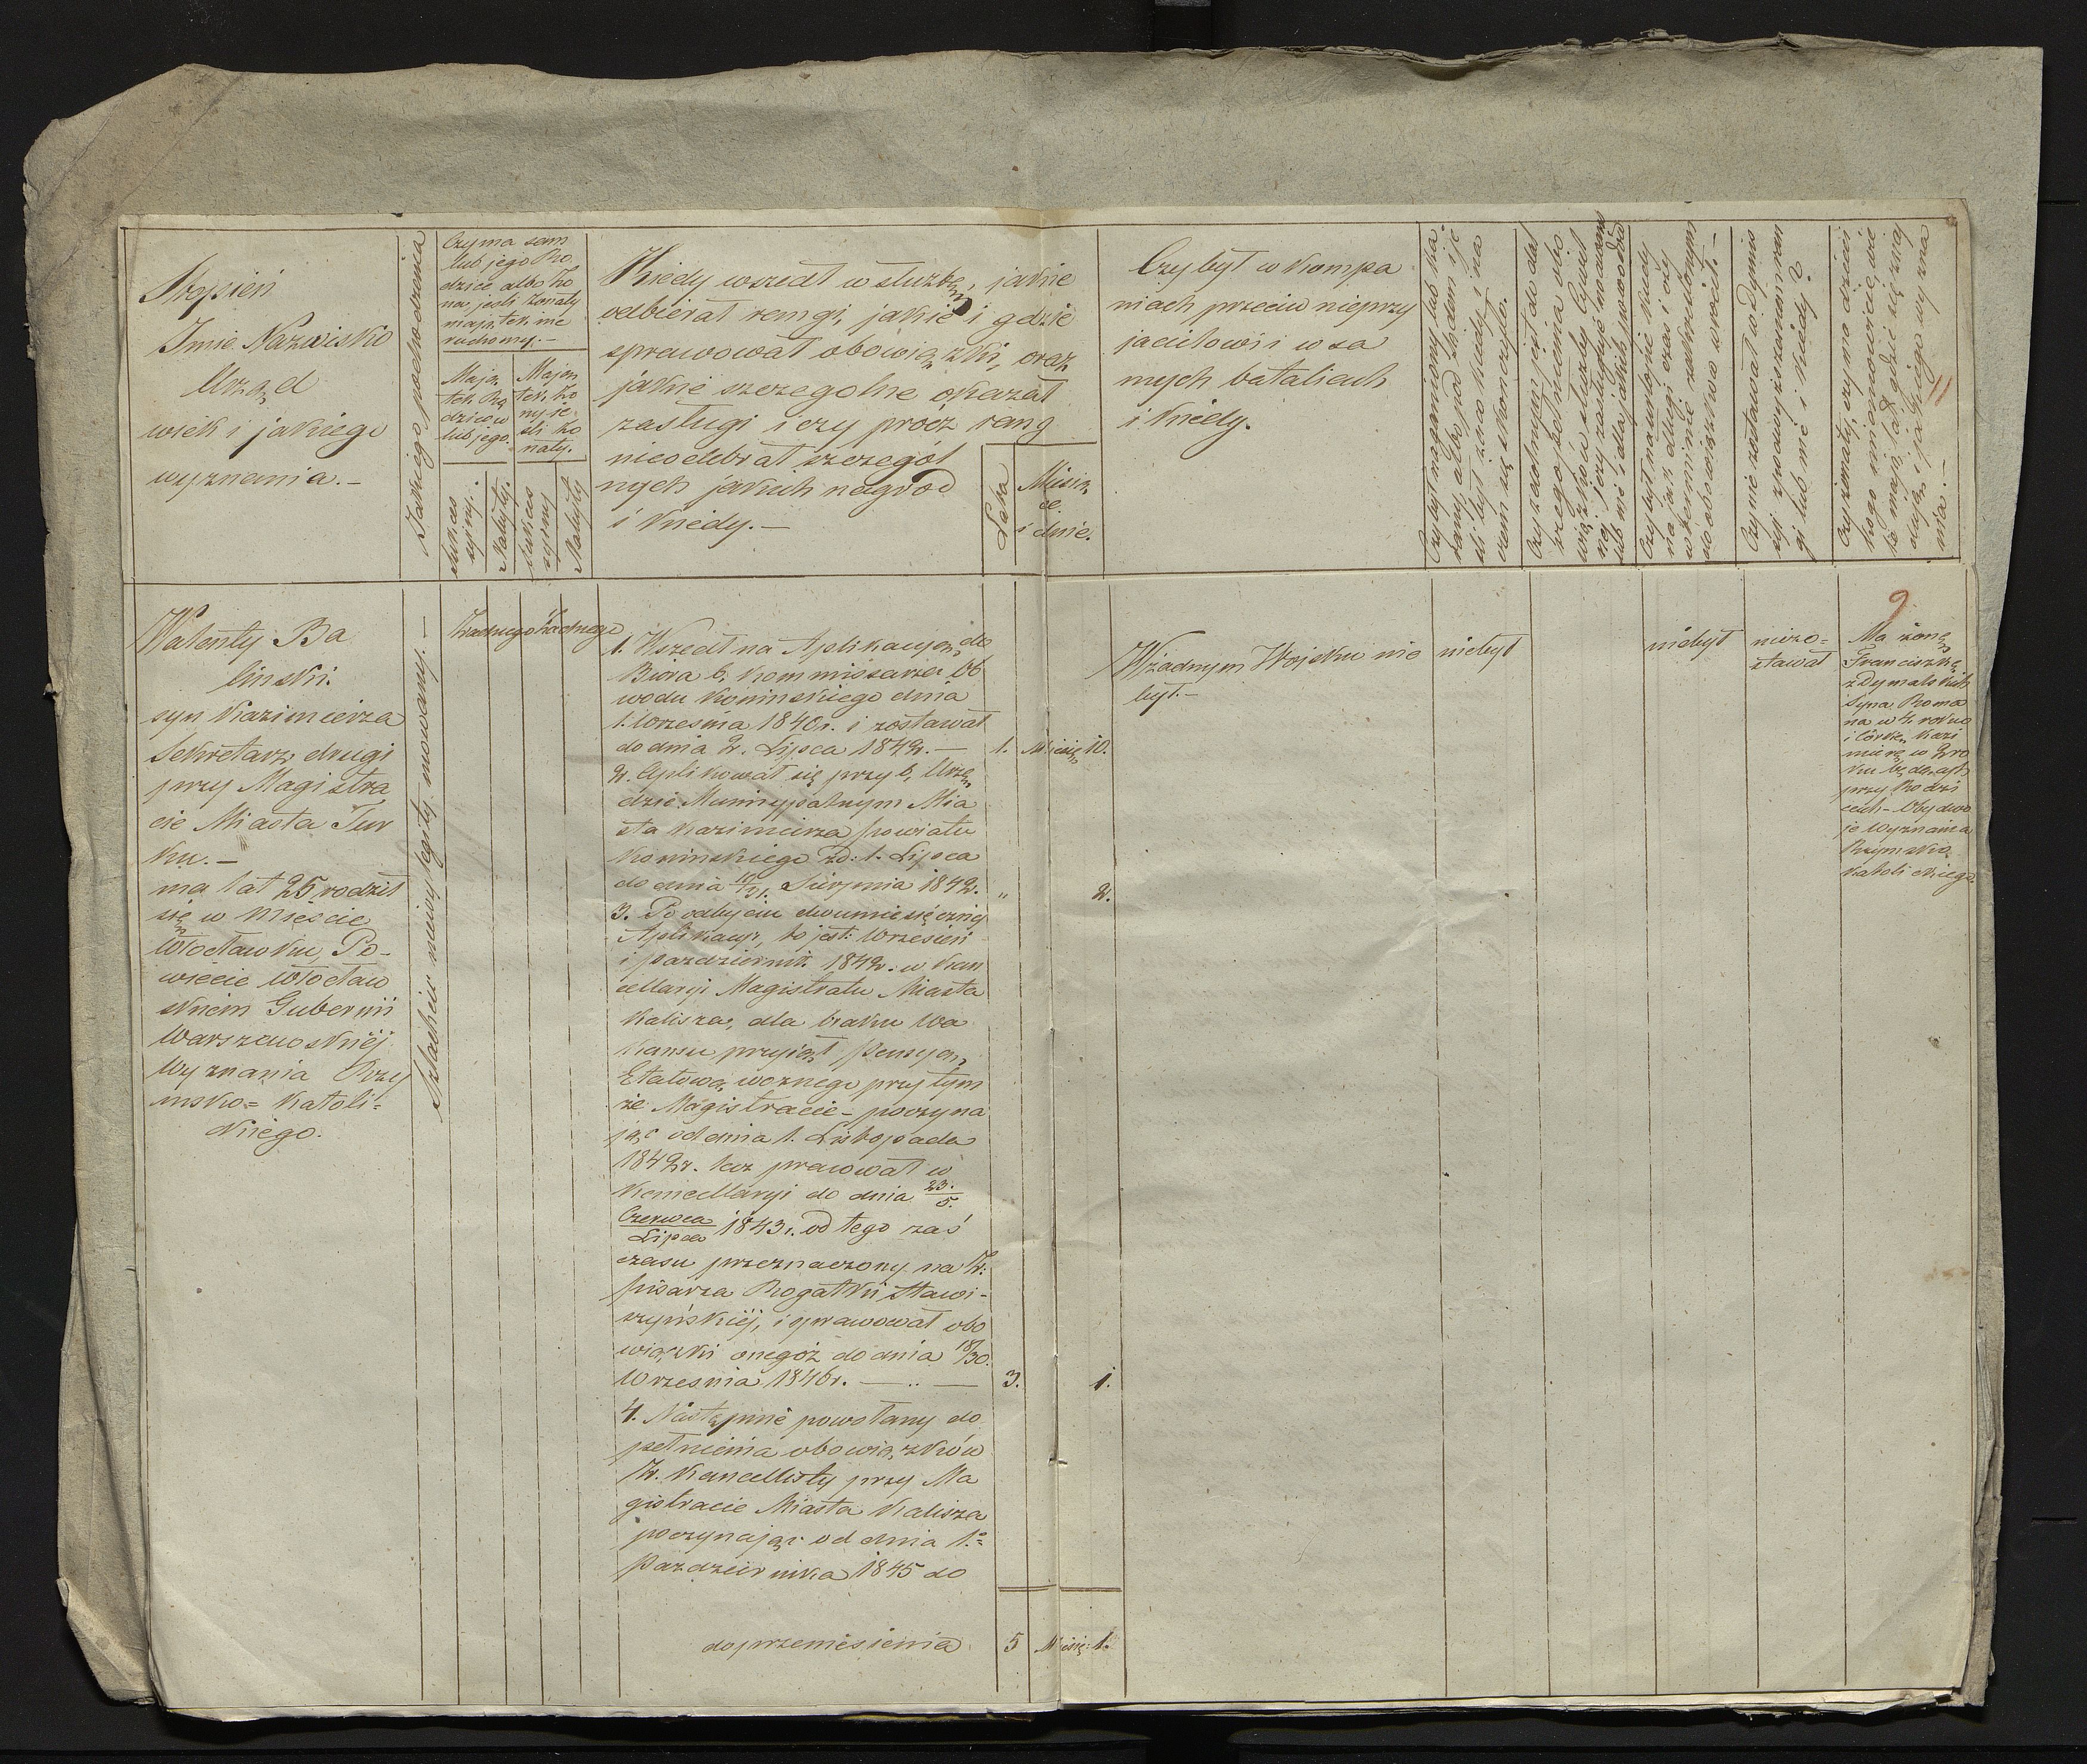 Stopień
Imie Nazwisko
Urząd
wiek i jakiego
wyznania.-
Jakiego pochodzenia
Czy ma sam
lub jego Ro
dzice albo żo
na, jeśli żonaty
majątek nie
ruchomy.-
Mają
tek Ro
dziców
lub jego.
Mają
tek żo
ny je
śli żo
naty.
Sukces
syjny.
Nabyty.
Sukces
syjny
Nabyty
Kiedy wszedł w służbę, jakie
odbierał rangi, jakie i gdzie
sprawował obowiązki, oraz
jakie szczegolne okazał
zasługi i czy prócz rang
nieodebrał szczegól
nych jakich nagrod
i kiedy.-
Lata
Miesią
ce
i dnie.
Czy był w kompa
niach przeciw nieprzy
jacielowi i w sa
mych bataliach
i kiedy.
Czy był naganionym lub ka
rany albo pod sądem je
śli był za co kiedy i na
czem się skończyło.
Czy zdolnym jest do dal
szego pełnienia obo
wiązków służby Cywil
nej i czy zasługuje na awans
lub nie i dla jakich powodów
Czy był na urlopie kiedy
na jak długi czas i czy
w terminie zakreślonym
do obowiązków wrócił.-
Czy nie zostawał w Dymis
syi z nowym iszenem ran
gi lub nie i kiedy?
Czy żonaty, czy ma dzieci
kogo mianowicie, wie
le mają lat gdzie się znaj
dują i jakiego wyzna
nia.-
11
9
Walenty Ba
liński.
syn Kazimierza
Sekretarz drugi
przy Magistra
cie Miasta Tur
ku.-
ma lat 25 rodził
się w Mieście
Włocławku, Po-
wiecie Włocław
skiem Gubernii
Warszawskiej
Wyznania Rzy
msko= Katoli=
ckiego.
Szlachcic niewylegitymowany.-
Żadnego
Żadnego
1. Wszedł na Aplikacyą do
Biura b. Kommissarza Ob
wodu Konińskiego dnia
1. Września 1840r. i zostawał
do dnia 2. Lipca 1842r.-
1. Miesię 10.
2. Aplikował się przy b. Urzę
dzie Municypalnym Mia
sta Kazimierza Powiatu
Konińskiego zd: 1. Lipca
do dnia 19/31. Sierpnia 1842.
„ 2.
3. Po odbyciu dwumiesięcznej
Aplikacyi, to jest: Wrzesień
i październik 1842r. w Kan
cellaryi Magistratu Miasta
Kalisza, dla braku Wa
kansu przyjął Pensyą
Etatową woznego przy tym
że Magistracie - poczyna
jąc od dnia 1. Listopada
1842r. lecz pracował w
Kancellaryi do dnia 23./5.
Czerwca/Lipca 1843r. od tego zaś
czasu przeznaczony na Z.
pisarza Rogatki Stawi-
szyńskiej, i sprawował obo
wiązki onegóż do dnia 18/30.
Września 1846r. — .. —
3. 1.
4. Następnie powołany do
pełnienia obowiązków
Z. Kancellisty przy Ma
gistracie Miasta Kalisza
poczynając od dnia 1.=
Października 1845 do
do przeniesienia.
5 Miesię: 1.
W żadnym Wojsku nie
był.-
niebył
niebył
niezo=
stawał
Ma żonę
Franciszkę
z Dymalskich
Syna Roma
na w 4. roku
i Córkę Kazi
mierę w 2 ro
ku będących
przy Rodzi
cach - Obydwo
je wyznania
Rzymsko
Katolickiego.